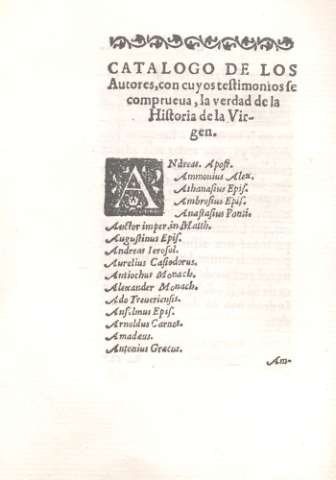 CATALOGO DE LOS
Autores, con cuyos testimonios se
comprueua, la verdad de la
Historia de la Vir-
gen.
ANdreas. Apost.
Ammonius Alex.
Athanasius Epis.
Ambrosius Epis.
Anastasius Ponti.
Auctor imper. in Matth.
Augustinus Epis.
Andreas Ierosol.
Aurelius Casiodorus.
Antiochus Monach.
Alexander Monach.
Ado Treueriensis.
Anselmus Epis.
Arnoldus Carnot.
Amadæus.
Antonius Græcus.
Am-